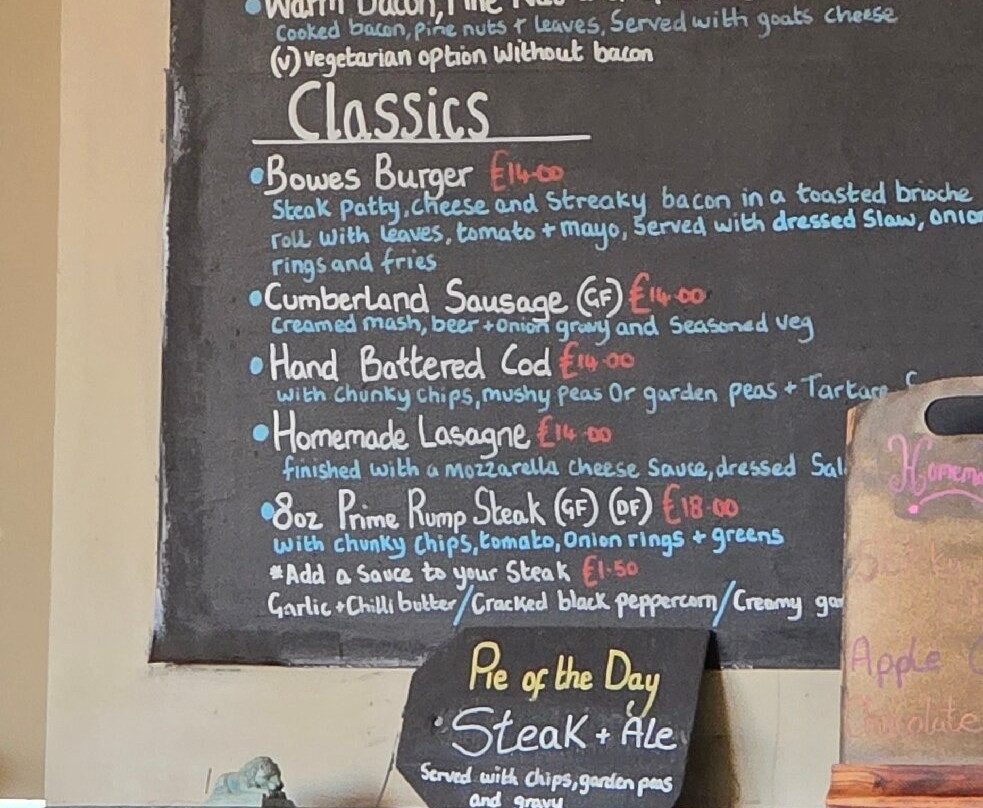 Warm Bacon, Pine
Cooked bacon, pine nuts + leaves, Served with goats cheese
(v) vegetarian option without bacon
Classics
• Bowes Burger £14.00
Steak Patty, cheese and Streaky bacon in a toasted brioche
roll with leaves, tomato + mayo, Served with dressed slaw, onion
rings and fries
• Cumberland Sausage (GF) £14.00
creamed mash, beer + onion gravy and seasoned veg
• Hand Battered Cod £14.00
with chunky chips, mushy peas Or garden peas + Tartare
• Homemade Lasagne £14.00
finished with a mozzarella cheese Sauce, dressed Sal
• 8oz Prime Rump Steak (GF) (DF) £18.00
with chunky chips, tomato, Onion rings + greens
*Add a Sauce to your Steak £1.50
Garlic + Chilli butter/Cracked black peppercorn/Creamy gar
Homema
Apple
Chocolate
Pie of the Day
Steak + Ale
Served with chips, garden peas
and gravy